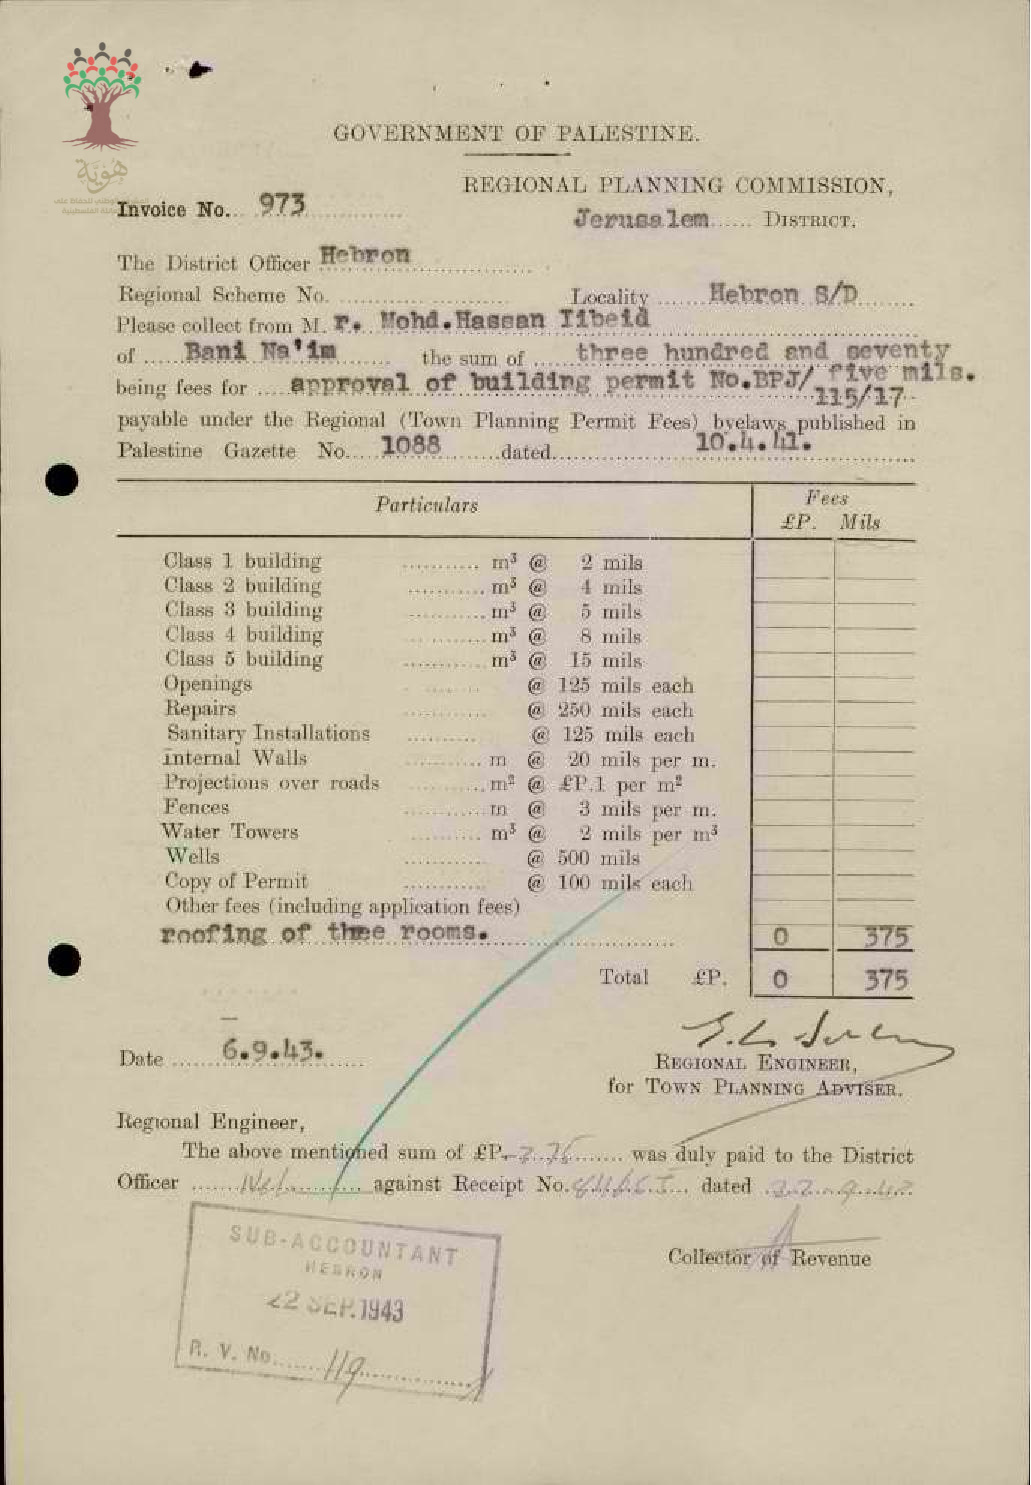 هوية
GOVERNMENT OF PALESTINE.
REGIONAL PLANNING COMMISSION,
Invoice No. 973
Jerusalem...... DISTRICT.
The District Officer Hebron
Regional Scheme No. .................... Locality ...... Hebron S/D
Please collect from M. r. Mohd.Hassan Iibeid
of ..... Bani Na'im ...... the sum of ..... three hundred and seventy
being fees for .... approval of building permit No.BPJ/ five mils.
115/17
payable under the Regional (Town Planning Permit Fees) byelaws published in
Palestine Gazette No.... 1088 .......dated.............. 10.4.41.
Particulars
Fees
£P. Mils
Class 1 building ........... m³ @ 2 mils
Class 2 building ........... m³ @ 4 mils
Class 3 building ........... m³ @ 5 mils
Class 4 building ........... m³ @ 8 mils
Class 5 building ........... m³ @ 15 mils
Openings @ 125 mils each
Repairs ........... @ 250 mils each
Sanitary Installations .......... @ 125 mils each
Internal Walls ........... m @ 20 mils per m.
Projections over roads ........... m² @ £P.1 per m²
Fences ........... m @ 3 mils per m.
Water Towers .......... m³ @ 2 mils per m³
Wells ........... @ 500 mils
Copy of Permit ........... @ 100 mils each
Other fees (including application fees)
roofing of thee rooms. ...................... 0 375
Total £P. 0 375
Date ...... 6.9.43.
REGIONAL ENGINEER,
for TOWN PLANNING ADVISER.
Regional Engineer,
The above mentioned sum of £P. ........ was duly paid to the District
Officer ................ against Receipt No. ........ dated ........
Collector of Revenue
SUB-ACCOUNTANT
HEBRON
22 SEP.1943
R. V. No....... 119